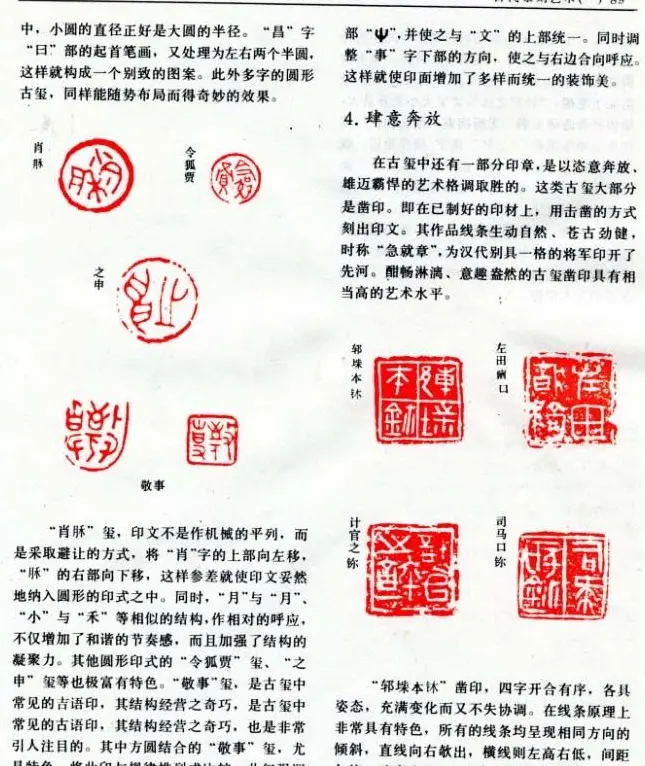 中,小圆的直径正好是大圆的半径。“昌”字
“曰”部的起首笔画,又处理为左右两个半圆,
这样就构成一个别致的图案。此外多字的圆形
古玺,同样能随势布局而得奇妙的效果。
肖
令狐贾
之申
敬事
“肖𬛸”玺,印文不是作机械的平列,而
是采取避让的方式,将“肖”字的上部向左移,
的右部向下移,这样参差就使印文妥然
地纳入圆形的印式之中。同时,“月”与“月”、
“小”与“禾”等相似的结构,作相对的呼应,
不仅增加了和谐的节奏感,而且加强了结构的
凝聚力。其他圆形印式的“令狐贾”玺、“之
申”玺等也极富有特色。“敬事”玺,是古玺中
常见的吉语印,其结构经营之奇巧,是古玺中
常见的古语印,其结构经营之奇巧,也是非常
引人注目的。其中方圆结合的“敬事”玺,尤
部“Ψ”,并使之与“文”的上部统一。同时调
整“事”字下部的方向,使之与右边合向呼应。
这样就使印面增加了多样而统一的装饰美。
4.肆意奔放
在古玺中还有一部分印章,是以恣意奔放、
雄迈霸悍的艺术格调取胜的。这类古玺大部分
是凿印。即在已制好的印材上,用击凿的方式
刻出印文。其作品线条生动自然、苍古劲健,
时称“急就章”,为汉代别具一格的将军印开了
先河。酣畅淋漓、意趣盎然的古玺凿印具有相
当高的艺术水平。
本
左田 口
计官之鉨
司马口鉨
凿印,四字开合有序,各具
姿态,充满变化而又不失协调。在线条原理上
非常具有特色,所有的线条均呈现相同方向的
倾斜,直线向右欹出,横线则左高右低,间距